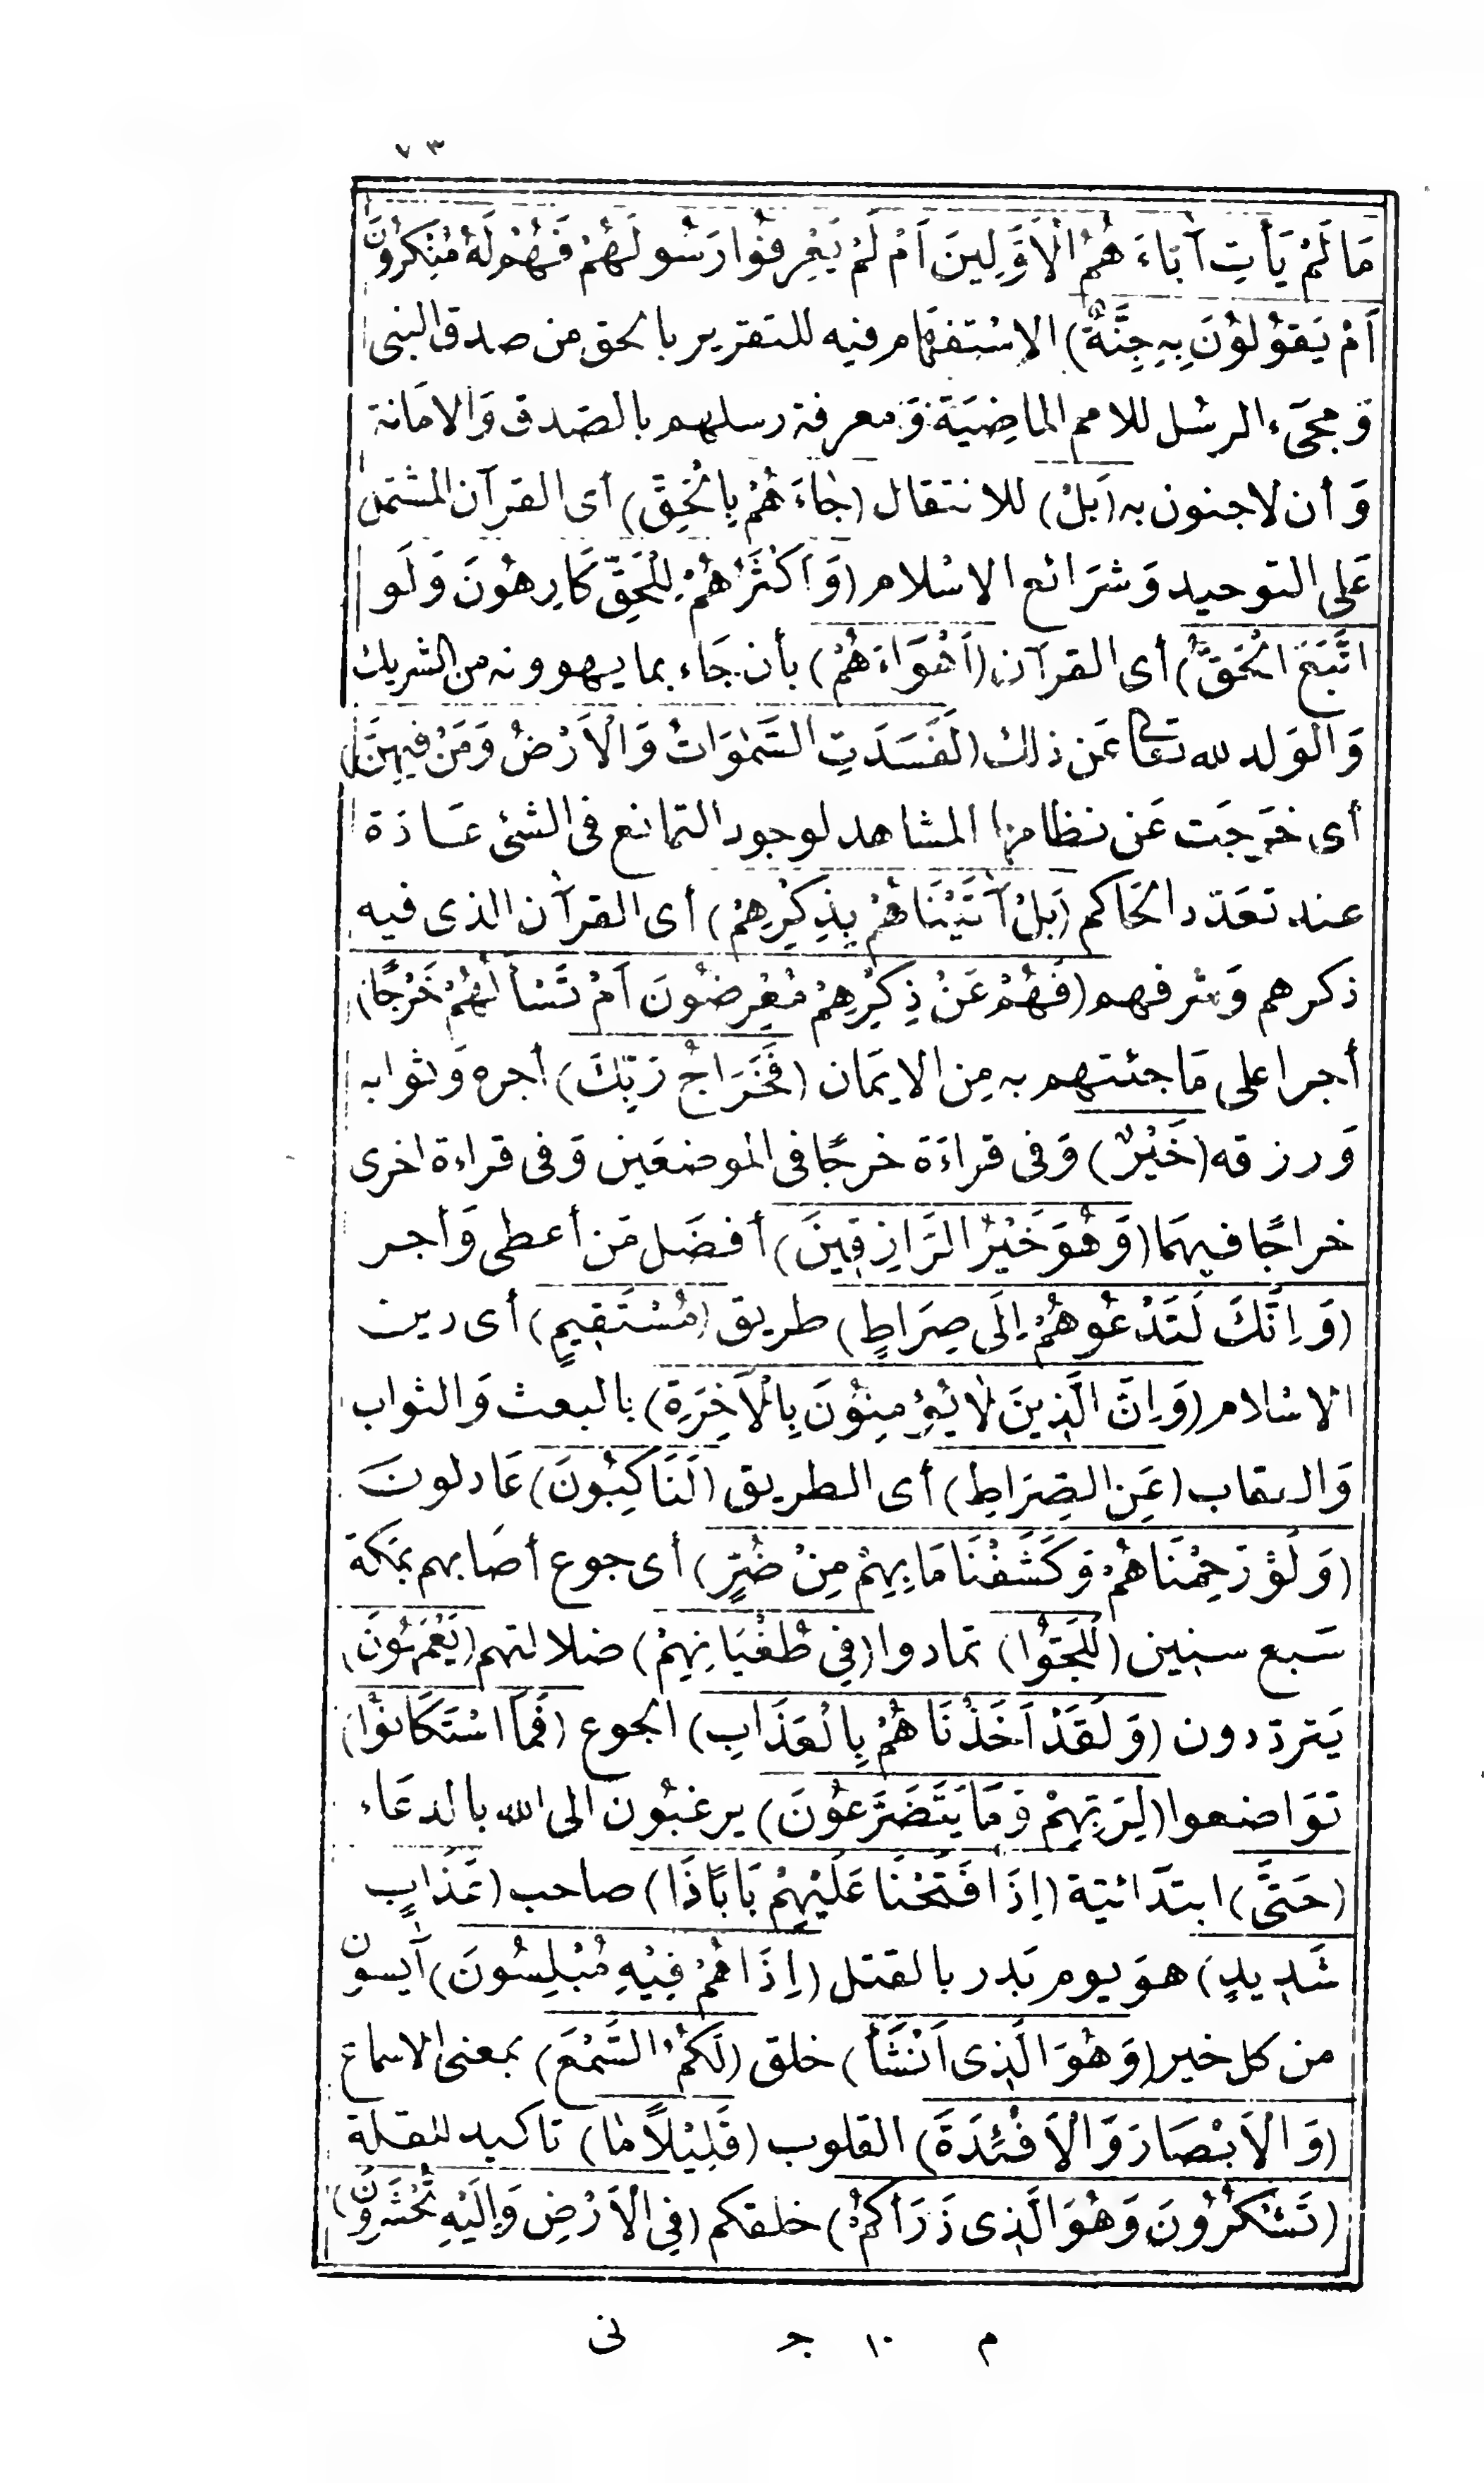 ٧٣
مَا لَمْ يَأْتِ آبَاءَهُمُ الْاَوَّلِينَ اَمْ لَمْ يَعْرِفُوا رَسُولَهُمْ فَهُمْ لَهُ مُنْكِرُونَ
اَمْ يَقُولُونَ بِهِ جِنَّةٌ) الاسْتِفهَام فيه للتقرير بالحق من صدق النبى
وَمجَىء الرسُل للامم الماضِيَة وَمعرفة رسلهم بالصّدق وَالامَانة
وَأن لاجنون به (بَلْ) للانتقال (جَاءَهُمْ بِالْحَقِّ) أى القرآن المشتمل
عَلى التوحيد وَشرَائع الاسْلام (وَاَكْثَرُهُمْ لِلْحَقِّ كَارِهُونَ وَلَو
اتَّبَعَ الْحَقُّ) أى القرآن (اَهْوَاءَهُمْ) بأن جَاء بما يهوونه من الشريك
وَالوَلد لله تعَالى عَن ذلك (لَفَسَدَتِ السَّمٰوَاتُ وَالْاَرْضُ وَمَنْ فِيهِنَّ)
أى خرَجَت عَن نظامها المشاهد لوجود التمانع فى الشئ عَادَة
عند تعَدّد الحَاكم (بَلْ آتَيْنَاهُمْ بِذِكْرِهِمْ) أى القرآن الذى فيه
ذكرهم وَشرفهم (فَهُمْ عَنْ ذِكْرِهِمْ مُعْرِضُونَ اَمْ تَسْأَلُهُمْ خَرْجًا)
أجرا على مَاجئتهم به مِن الايمَان (فَخَرَاجُ رَبِّكَ) أجره وَثوابه
وَرزقه (خَيْرٌ) وَفى قراءَة خرجًا فى الموضعَين وَفى قراءة اخرى
خراجًا فيهمَا (وَهُوَ خَيْرُ الرَّازِقِينَ) أفضَل مَن أعطى وَأجر
(وَاِنَّكَ لَتَدْعُوهُمْ اِلَى صِرَاطٍ) طريق (مُسْتَقِيمٍ) أى دين
الاسْلام (وَاِنَّ الَّذِينَ لَا يُؤْمِنُونَ بِالْاَخِرَةِ) بالبعث وَالثواب
وَالعقاب (عَنِ الصِّرَاطِ) أى الطريق (لَنَاكِبُونَ) عَادلونَ
(وَلَوْ رَحِمْنَاهُمْ وَكَشَفْنَا مَا بِهِمْ مِنْ ضُرٍّ) أى جوع أصَابهم بمَكة
سَبع سنين (لَلَجُّوا) تمادوا (فِى طُغْيَانِهِمْ) ضلالتهم (يَعْمَهُونَ)
يَتردّدون (وَلَقَدْ اَخَذْنَاهُمْ بِالْعَذَابِ) الجوع (فَمَا اسْتَكَانُوا)
توَاضعوا (لِرَبِّهِمْ وَمَا يَتَضَرَّعُونَ) يرغبُون الى الله بالدعَاء
(حَتَّى) ابتدَائيّة (اِذَا فَتَحْنَا عَلَيْهِمْ بَابًا ذَا) صاحب (عَذَابٍ
شَدِيدٍ) هوَ يوم بَدر بالقتل (اِذَا هُمْ فِيْهِ مُبْلِسُونَ) آيسون
من كل خير (وَهُوَ الَّذِى اَنْشَأَ) خلق (لَكُمُ السَّمْعَ) بمعنى الاسماع
(وَالْاَبْصَارَ وَالْاَفْئِدَةَ) القلوب (قَلِيْلًا مَا) تاكيد للقلة
(تَشْكُرُونَ وَهُوَ الَّذِى ذَرَأَكُمْ) خلقكم (فِى الْاَرْضِ وَاِلَيْهِ تُحْشَرُونَ)
م ١٠ ج نى